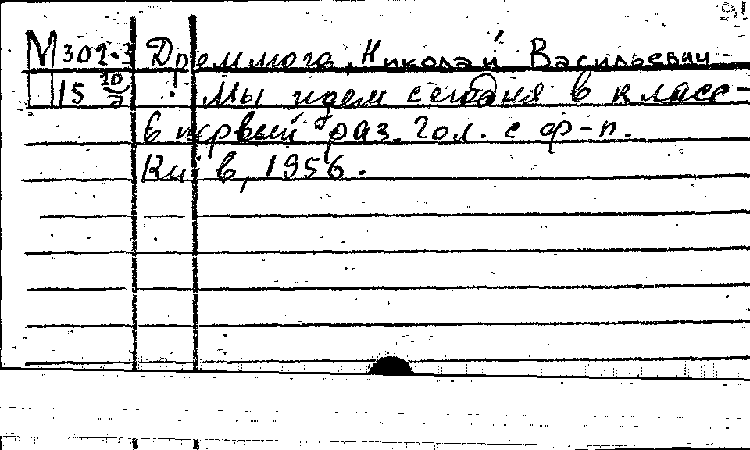 М 302.3 Дремлюга, Николай Васильевич
15 10/3 Мы идем сегодня в класс
в первый раз. Гол. с ф-п.
Київ, 1956.